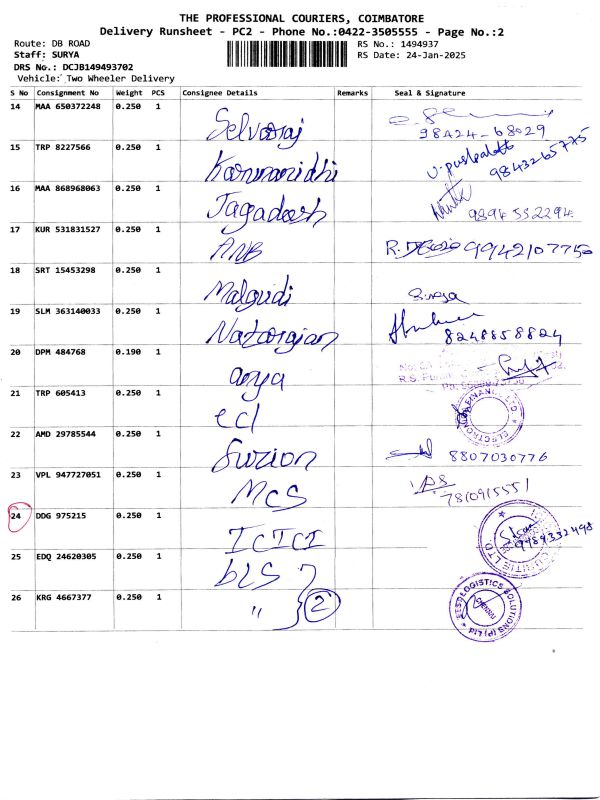 THE PROFESSIONAL COURIERS, COIMBATORE
Delivery Runsheet - PC2 - Phone No.:0422-3505555 - Page No.:2
Route: DB ROAD RS No.: 1494937
Staff: SURYA RS Date: 24-Jan-2025
DRS No.: DCJB149493702
Vehicle: Two Wheeler Delivery
S No Consignment No Weight PCS Consignee Details Remarks Seal & Signature
14 MAA 650372248 0.250 1 Selvaraj
98424-68029
15 TRP 8227566 0.250 1 Karunanidhi 9843265775
16 MAA 868968063 0.250 1 Jagadeesh 9894 552294
17 KUR 531831527 0.250 1 ANB 9942107750
18 SRT 15453298 0.250 1 Malgudi
19 SLM 363140033 0.250 1 Natarajan 8248858824
20 DPM 484768 0.190 1 arya
21 TRP 605413 0.250 1 ecl
22 AMD 29785544 0.250 1 Furion 8807030776
23 VPL 947727051 0.250 1 MCS 7810915551
24 DDG 975215 0.250 1 ICICI 9489332498
25 EDQ 24620305 0.250 1 bLS
26 KRG 4667377 0.250 1 " 2 LOGISTICS SOLUTIONS (P) Ltd CHENNAI